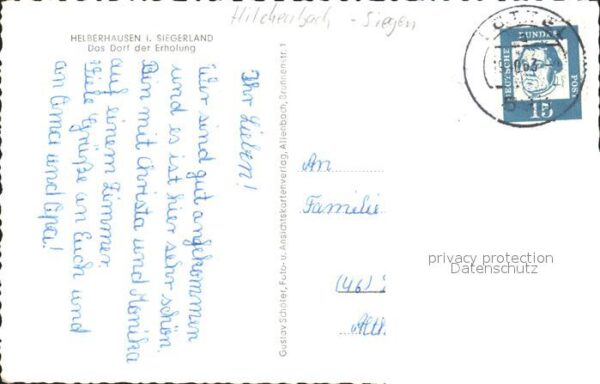 Hilchenbach - Siegen
HELBERHAUSEN i. SIEGERLAND
Das Dorf der Erholung
Ihr Lieben!
Wir sind gut angekommen
und es ist hier sehr schön.
Bin mit Christa und Monika
auf einem Zimmer.
Viele Grüße an Euch und
an Oma und Opa!
Gustav Schäfer, Foto- u. Ansichtskartenverlag, Allenbach, Brunnenstr. 1
DEUTSCHE BUNDESPOST
15
An
Familie
(46)
privacy protection
Datenschutz